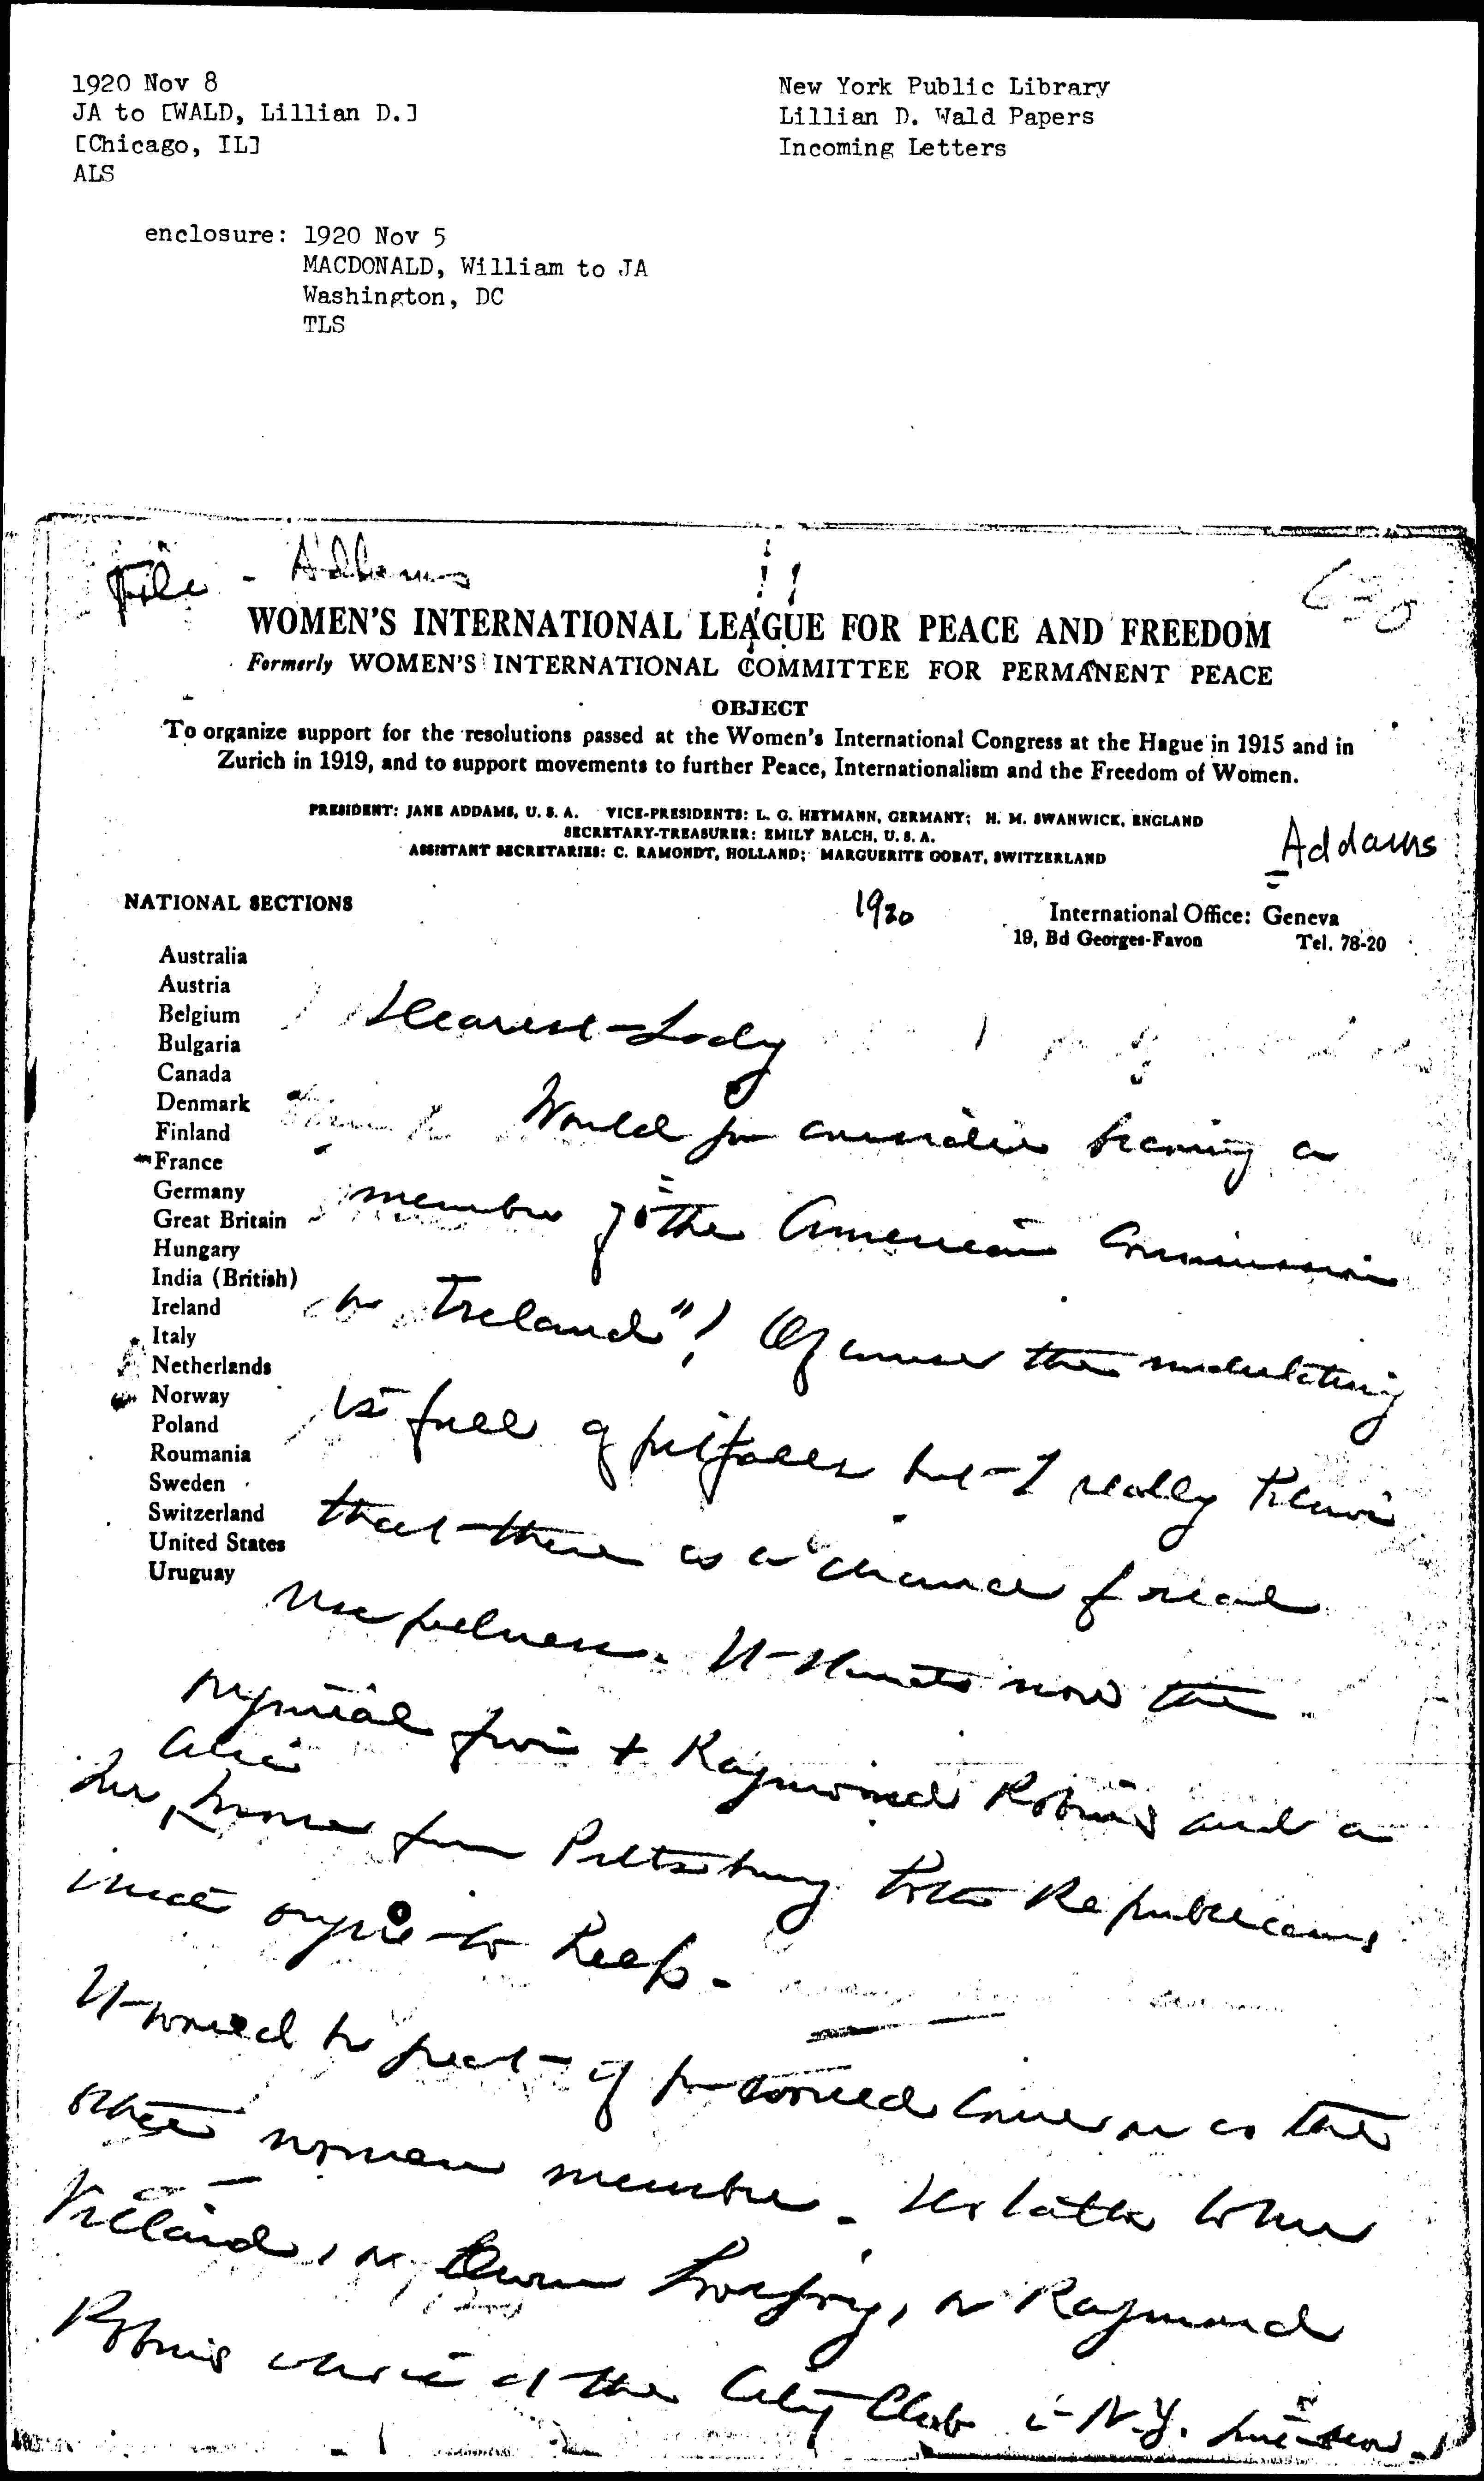 1920 Nov 8
JA to [WALD, Lillian D.]
[Chicago, IL]
ALS
enclosure: 1920 Nov 5
MACDONALD, William to JA
Washington, DC
TLS
New York Public Library
Lillian D. Wald Papers
Incoming Letters
File - Addams
WOMEN'S INTERNATIONAL LEAGUE FOR PEACE AND FREEDOM
Formerly WOMEN'S INTERNATIONAL COMMITTEE FOR PERMANENT PEACE
OBJECT
To organize support for the resolutions passed at the Women's International Congress at the Hague in 1915 and in
Zurich in 1919, and to support movements to further Peace, Internationalism and the Freedom of Women.
PRESIDENT: JANE ADDAMS, U. S. A. VICE-PRESIDENTS: L. G. HEYMANN, GERMANY; H. M. SWANWICK, ENGLAND
SECRETARY-TREASURER: EMILY BALCH, U. S. A.
ASSISTANT SECRETARIES: C. RAMONDT, HOLLAND; MARGUERITE GOBAT, SWITZERLAND
Addams
NATIONAL SECTIONS
1920
International Office: Geneva
19, Bd Georges-Favon Tel. 78-20
Australia
Austria
Belgium
Bulgaria
Canada
Denmark
Finland
France
Germany
Great Britain
Hungary
India (British)
Ireland
Italy
Netherlands
Norway
Poland
Roumania
Sweden
Switzerland
United States
Uruguay
Dearest Lady
Would you consider becoming a
member of the American Commission
to Ireland"! Of course the undertaking
is full of pitfalls but I really believe
that there is a chance for real
usefulness. It stands now the
original five + Raymond Robins and a
from Pittsburg both Republicans
to keep.
It would be great if you would come on as the
other woman member. Do talk to
Villard, or, or Raymond
Robins who is at the City Club in N.Y.